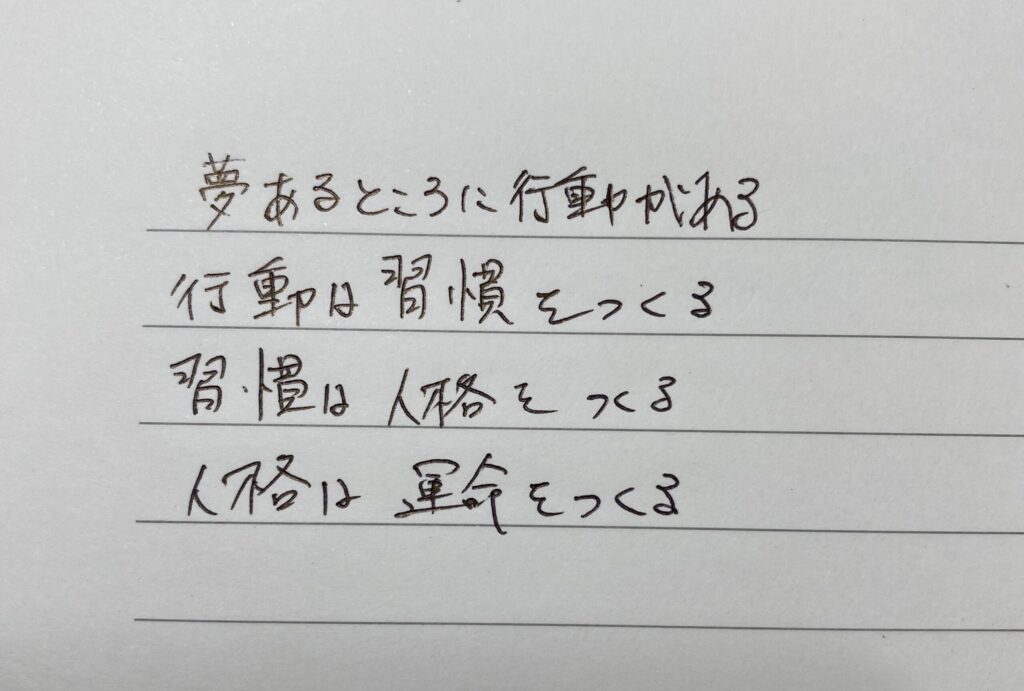 夢あるところに行動がある
行動は習慣をつくる
習慣は人格をつくる
人格は運命をつくる